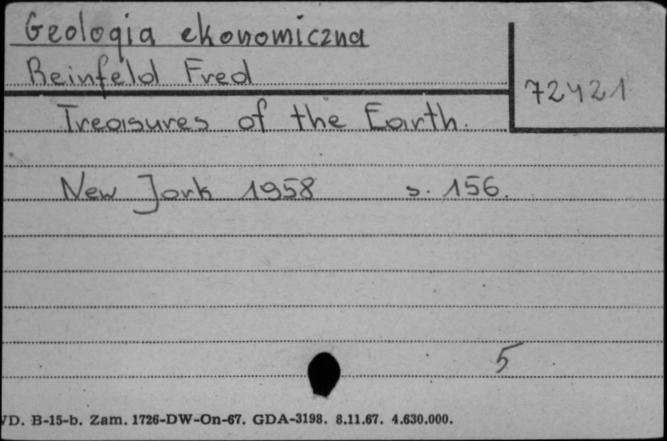 Geologia ekonomiczna
Reinfeld Fred
72421
Treasures of the Earth.
New Jork 1958 s. 156.
5
VD. B-15-b. Zam. 1726-DW-On-67. GDA-3198. 8.11.67. 4.630.000.